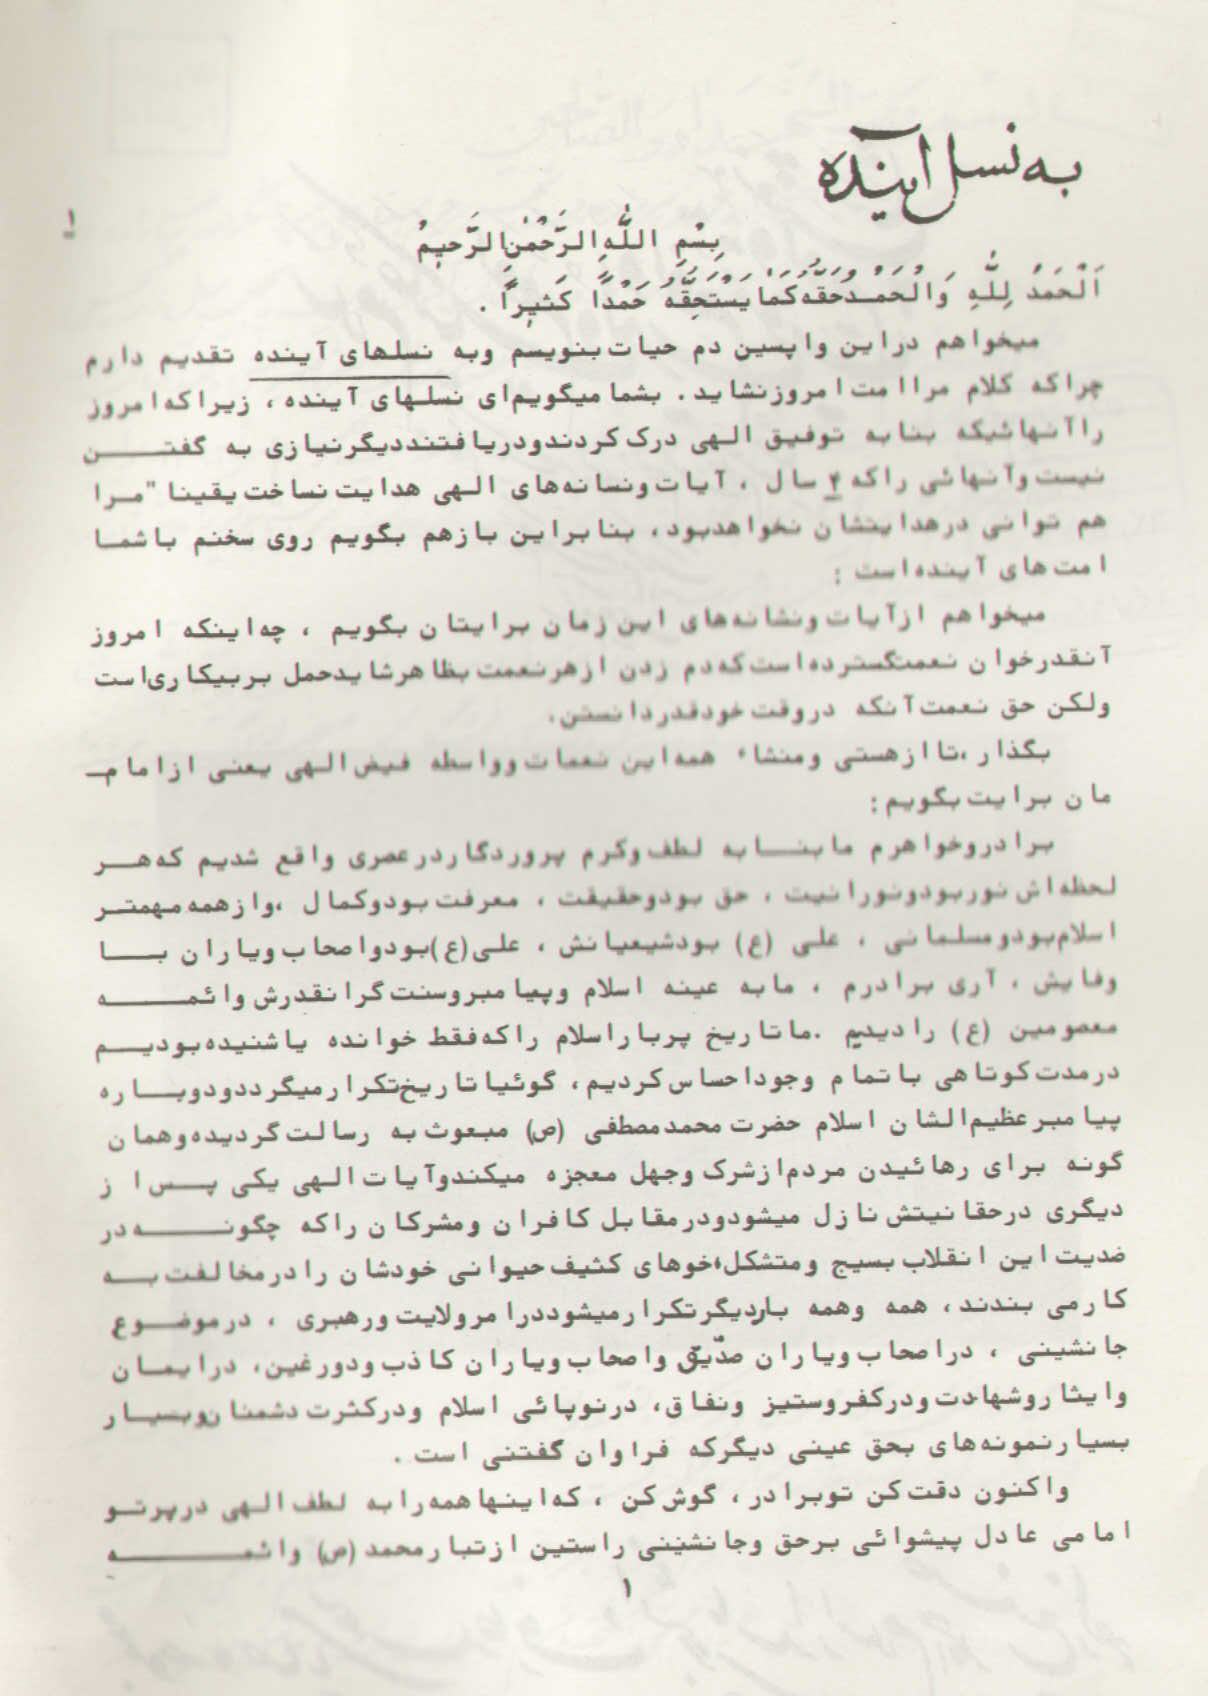 به نسل آینده
۱
بِسْمِ اللّٰهِ الرَّحْمٰنِ الرَّحیمُ
اَلْحَمْدُ لِلّٰهِ وَالْحَمْدُ حَقَّهُ کَمَا یَسْتَحِقَّهُ حَمْدًا کَثیرًا .
میخواهم دراین واپسین دم حیات بنویسم وبه نسلهای آینده تقدیم دارم
چراکه کلام مرا امت امروزنشاید . بشما میگویم‌ای نسلهای آینده ، زیراکه امروز
راآنهائیکه بنابه توفیق الهی درک کردندودریافتنددیگرنیازی به گفتن
نیست وآنهائی راکه ۴ سال ، آیات ونسانه‌های الهی هدایت نساخت یقینا "مرا
هم توانی درهدایتشان نخواهدبود ، بنابراین بازهم بگویم روی سخنم باشما
امت‌های آینده‌است :
میخواهم ازآیات ونشانه‌های این زمان برایتان بگویم ، چه‌اینکه امروز
آنقدرخوان نعمت‌گسترده‌است که‌دم زدن ازهرنعمت بظاهرشایدحمل بربیکاری‌است
ولکن حق نعمت آنکه دروقت خودقدردانستن.
بگذار ،تاازهستی ومنشاء همه‌این نعمات وواسطه فیض الهی یعنی ازامام-
مان برایت بگویم :
برادروخواهرم مابنابه لطف وکرم پروردگاردرعصری واقع شدیم که‌هر
لحظه‌اش نوربودونورانیت ، حق بودوحقیقت ، معرفت بودوکمال ،وازهمه مهمتر
اسلام‌بودومسلمانی ، علی (ع) بودشیعیانش ، علی(ع)بودواصحاب ویاران با
وفایش ، آری برادرم ، مابه عینه اسلام وپیامبروسنت گرانقدرش وائمه
معصومین (ع) رادیدیم .ماتاریخ پرباراسلام راکه‌فقط خوانده یاشنیده‌بودیم
درمدت کوتاهی باتمام وجوداحساس کردیم، گوئیاتاریخ‌تکرارمیگرددودوباره
پیامبرعظیم‌الشان اسلام حضرت محمدمصطفی (ص) مبعوث به رسالت گردیده‌وهمان
گونه برای رهائیدن مردم‌ازشرک وجهل معجزه میکندوآیات الهی یکی پس از
دیگری درحقانیتش نازل میشودودرمقابل کافران ومشرکان راکه چگونه‌در
ضدیت این انقلاب بسیج ومتشکل،خوهای کثیف حیوانی خودشان رادرمخالفت به
کارمی بندند، همه وهمه باردیگرتکرارمیشوددرامرولایت ورهبری ، درموضوع
جانشینی ، دراصحاب ویاران صدّیق واصحاب ویاران کاذب ودورغین، درایمان
وایثاروشهادت ودرکفروستیز ونفاق، درنوپائی اسلام ودرکثرت دشمنان‌وبسیار
بسیارنمونه‌های بحق عینی دیگرکه فراوان گفتنی است .
واکنون دقت کن توبرادر، گوش کن ، که‌اینهاهمه‌رابه لطف الهی درپرتو
امامی عادل پیشوائی برحق وجانشینی راستین ازتبارمحمد(ص) وائمه
۱